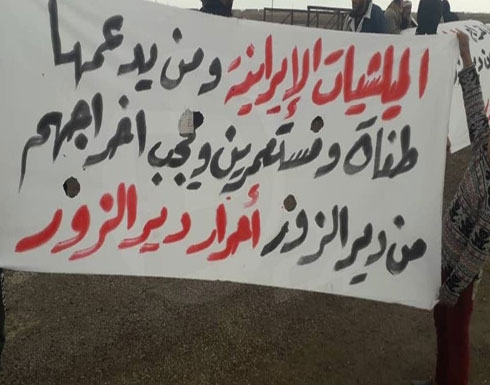 الميليشيات الإيرانية ومن يدعمها
طغاة ومستعمرين ويجب اخراجهم
من دير الزور أحرار دير الزور